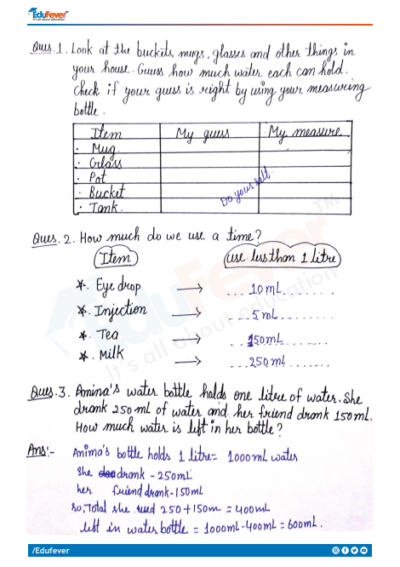 EduFever
Ques.1. Look at the buckets, mugs, glasses and other things in
your house. Guess how much water each can hold.
Check if your guess is right by using your measuring
bottle.
Item My guess My measure
• Mug
• Glass
• Pot
• Bucket
• Tank
Do your self
Ques.2. How much do we use a time?
Item use less than 1 litre
* Eye drop → ...10mL.......
* Injection → ...5mL.......
* Tea → ...150mL.......
* Milk → ...250mL.......
EduFever
It's all about education
TM
Ques.3. Amina's water bottle holds one litre of water. She
drank 250ml of water and her friend drank 150ml.
How much water is left in her bottle?
Ans:- Anima's bottle holds 1 litre = 1000mL water
She drank - 250mL
her friend drank - 150mL
so, total she used 250+150m = 400mL
left in water bottle = 1000mL-400mL = 600mL.
/Edufever